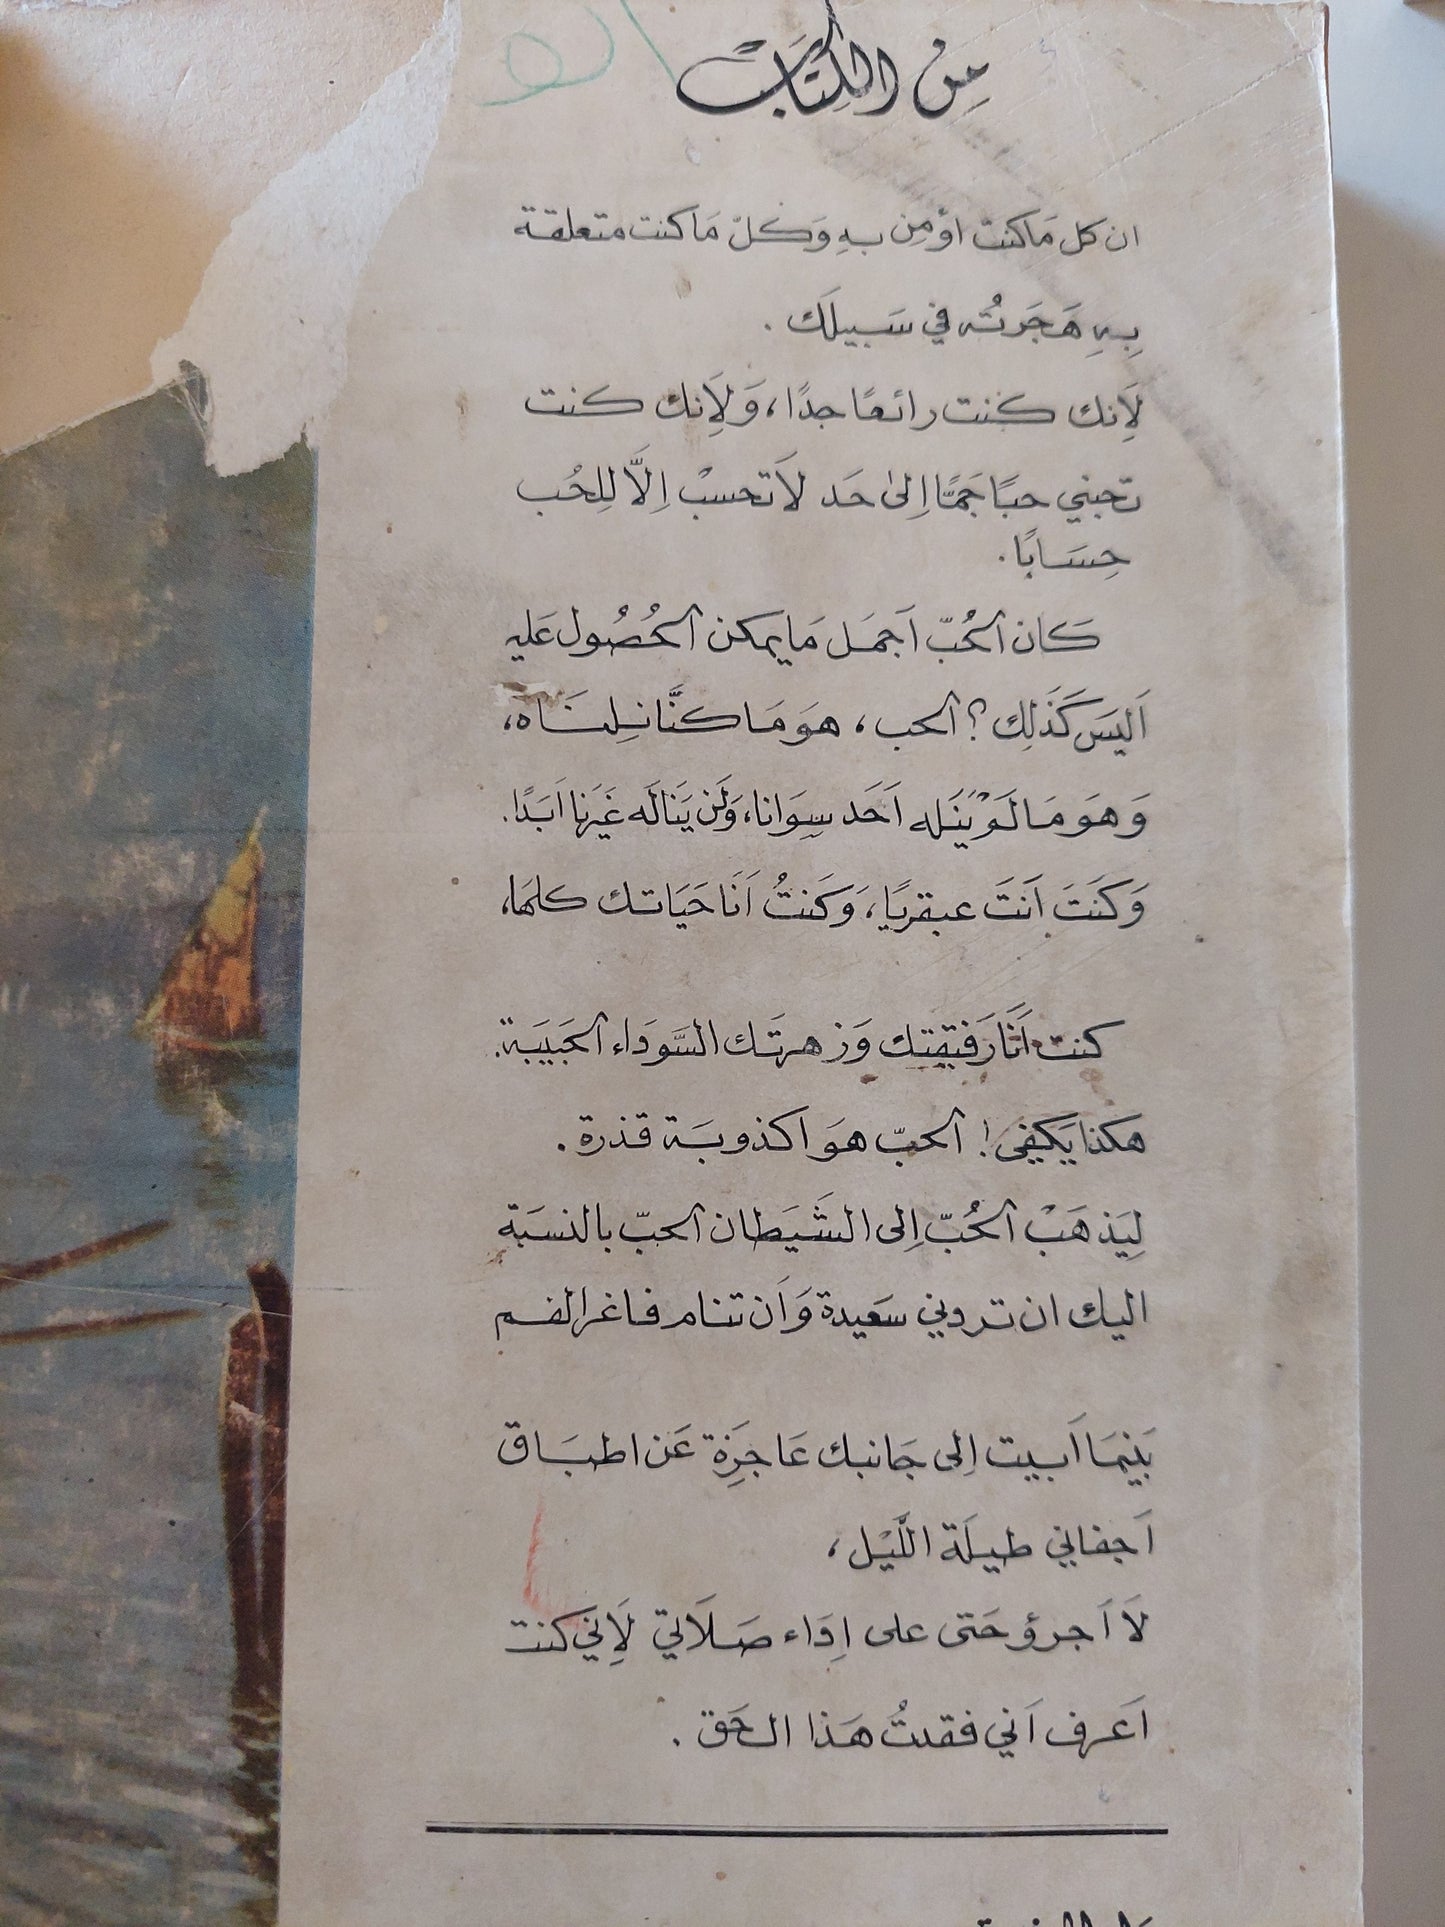 مِنَ الكِتَابْ
ان كل مَا كنت اؤمِن بهِ وَكلّ مَا كنت متعلقة
بِهِ هَجَرتُه في سَبيلَك .
لَانك كنت رائعًا جدًا، وَلِأَنك كنت
تحبني حبًا جَمًّا إِلىٰ حَد لاَ تحسبْ إِلاَّ للِحُب
حِسَابًا .
كَان الحُبّ اَجمَل مَا يمكن الحُصُول عَليه
اَليسَ كَذَلِك ؟ الحب ، هوَ مَا كنَّا نِلنَاه ،
وَهوَ مَا لَمْ يَنَله اَحَد سِوَانا، وَلَن يَنَالَه غَيَرنا اَبَدًا .
وَكَنَتَ اَنتَ عبقريًا ، وَكَنتُ اَنَا حَيَاتك كلهَا،
كنت اَنَا رَفيقتك وَزهرتَك السَّودَاء الحَبيَبة .
هكذا يَكفِي ! الحبّ هوَ اكذوبَة قذرة .
لِيَذهَبْ الحُبّ إِلى الشَيَطان الحبّ بالنسبَة
اليك ان تروني سَعيدة وَاَن تنام فاغر الفم
بَينمَا اَبيت إِلى جَانبك عَاجَزِة عَن اطبَاق
اَجفاني طيلَة اللَّيْل ،
لاَ اَجرؤ حَتى على اِدَاء صَلَاتي لَاِنيَ كنت
اَعرف اَني فقدتُ هَذا الحَق .